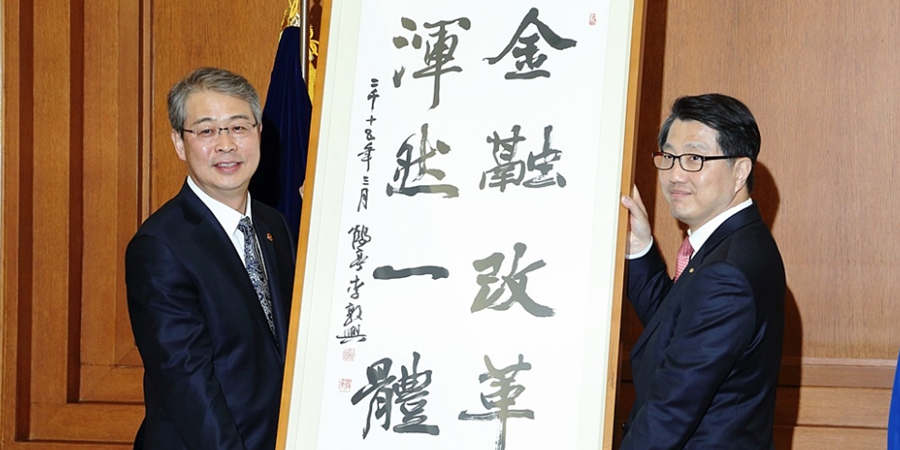 金融改革
渾然一體
二千十五年三月 鶴亭 李敦興